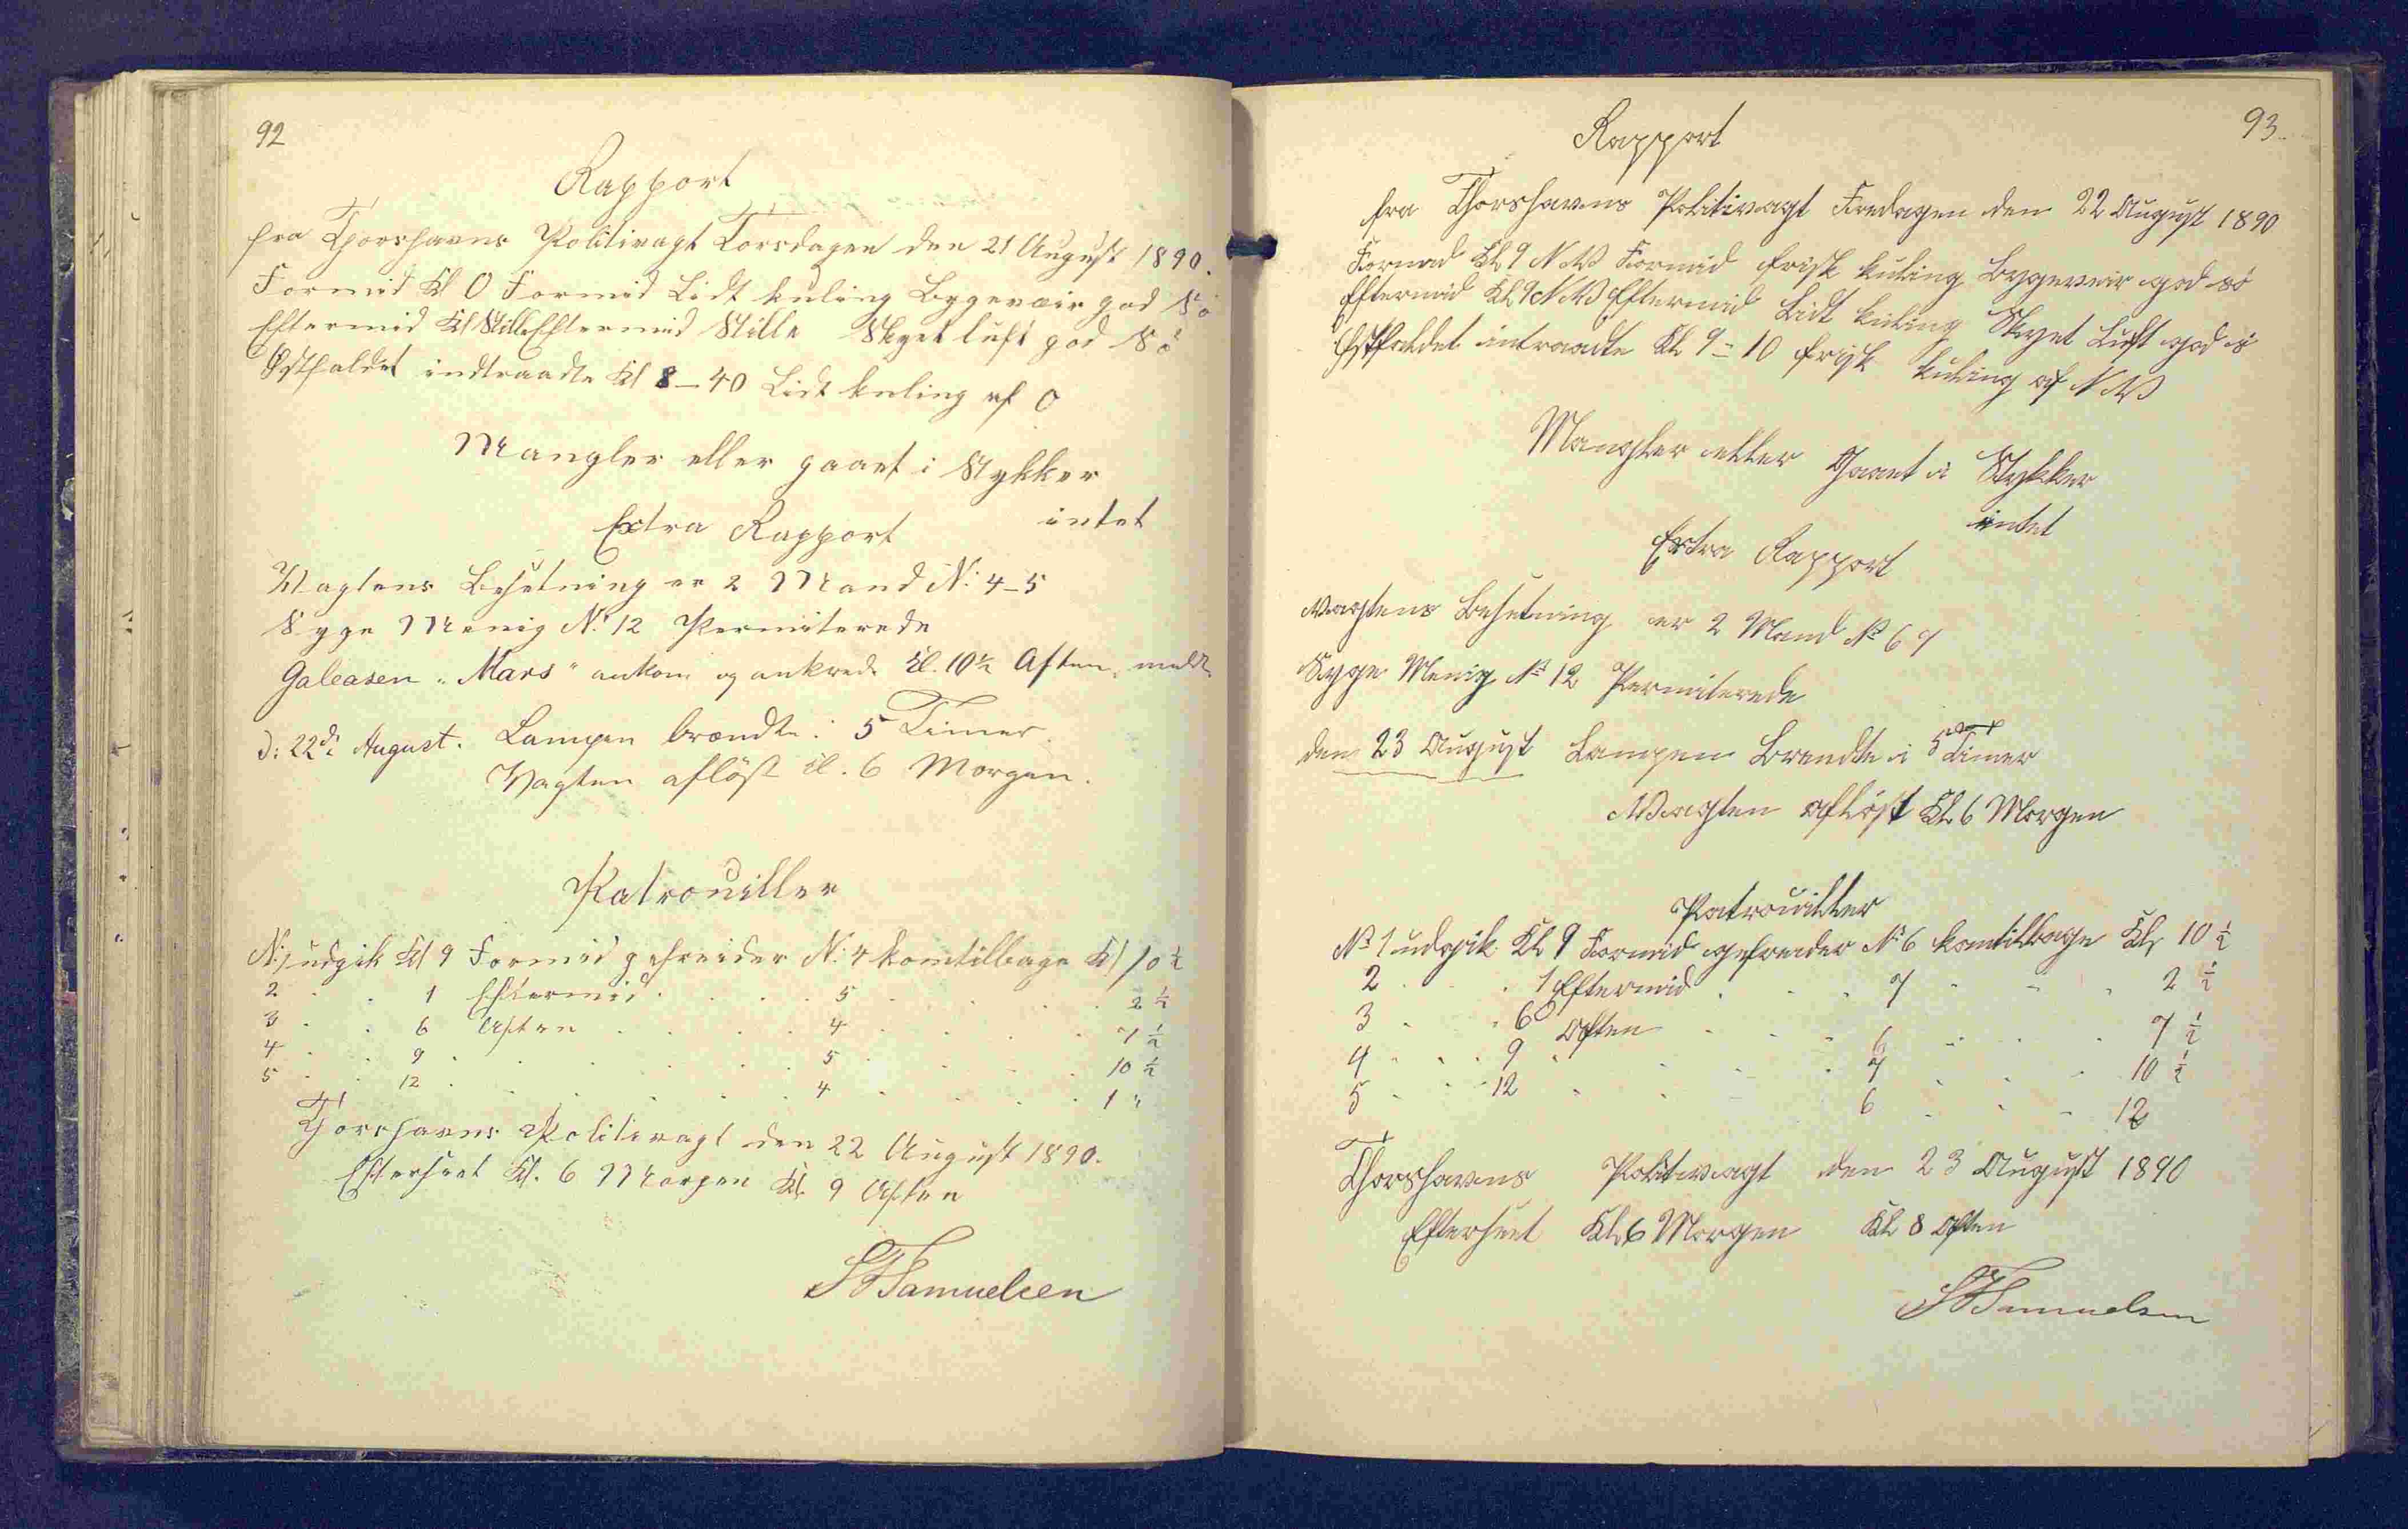 92
Rapport
fra Thorshavns Politivagt Torsdagen den 21 August 1890.
Formid Kl O Formid Lidt kuling Bygeveir god Sö
Eftermid Kl Stille Eftermid Stille Skyet luft god Sö
Østfaldet indtraadte Kl 8-40 Lidt kuling af O
Mangler eller gaaet i Stykker
intet
Extra Rapport
Vagtens Besetning er 2 Mand N: 4-5
Syge Menig N: 12 Permiterede
Galeasen "Mars" ankom og ankrede Kl. 10½ Aften
D: 22d: August. Lampen brændte i 5 Timer.
Vagten aflöst Kl. 6 Morgen.
Patrouiller
N: 1 udgik Kl 9 Formid gefreider N: 4 komtilbage Kl 10½
2 " " 1 Eftermid " " 5 " " 2½
3 " " 6 Aften " " 4 " " 7½
4 " " 9 " " " 5 " " 10½
5 " " 12 " " " 4 " " 1 "
Thorshavns Politivagt den 22 August 1890.
Efterseet Kl. 6 Morgen Kl. 9 Aften
Samuelsen
93.
Rapport
fra Thorshavns Politivagt Fredagen den 22 August 1890
Formid Kl 9 NW Formid frisk kuling Bygeveir god sö
Eftermid Kl 9 NW Eftermid Lidt kuling Skyet Luft god sö
Østfaldet intraadte Kl 9=10 frisk kuling af NW
Mangler eller Gaaet i Stykker
intet
Extra Rapport
Vagtens Besetning er 2 Mand No 6 7
Syge Menig No 12 Permiterede
den 23 August Lampen Brendte i 5 Timer
Wagten aflöst Kl 6 Morgen
Patrouiller
No 1 udgik Kl 9 Formid gefreider No 6 komtilbage Kl 10½
2 " " 1 Eftermid " " 7 " " 2½
3 " " 6 Aften " " 6 " " 7½
4 " " 9 " " " 7 " " 10½
5 " " 12 " " " 6 " " 12
Thorshavns Politivagt den 23 August 1890
Efterseet Kl 6 Morgen Kl 8 Aften
Samuelsen